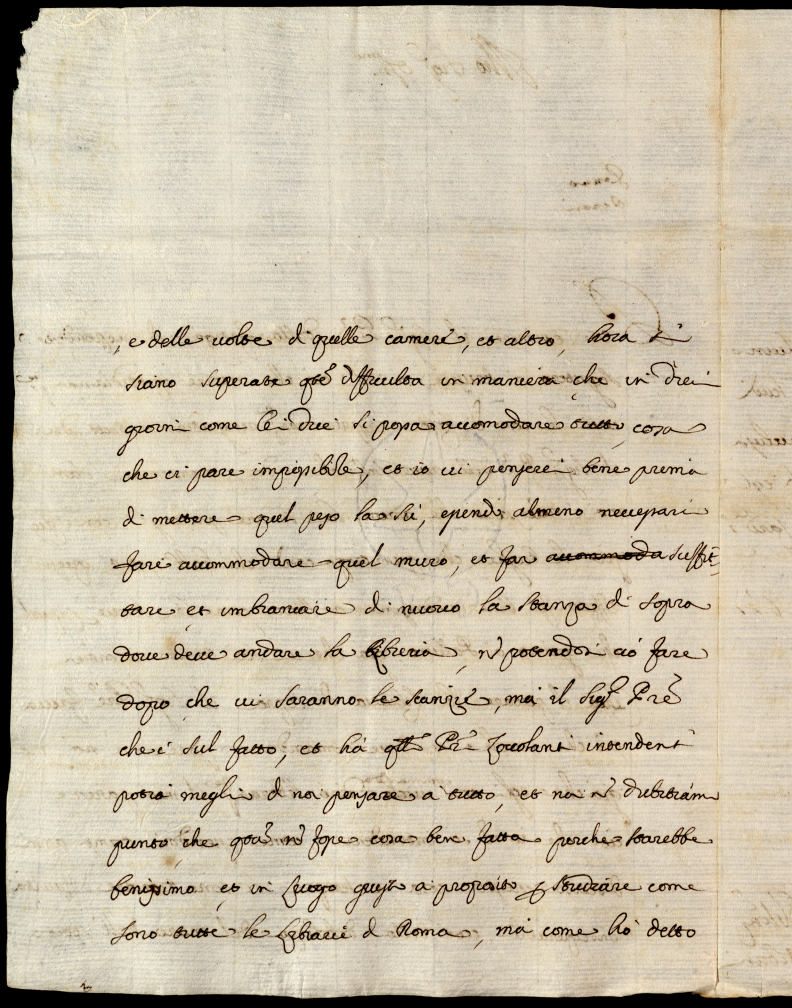 e delle uolte di quelle camere, et altro, hora si
siano superate qte difficultà in maniera che in dieci
giorni come lei dice si possa accomodare tutto, cosa
che ci pare impossibile, et io ui penserei bene prima
di mettere quel peso la sù, essendo almeno necessario
fare accommodare quel muro, et far accommoda suffit-
tare et imbiancare di nuouo la stanza di sopra
doue deue andare la libreria, nō potendosi ciò fare
dopo che ui saranno le scanzie, mà il Sigr Pre
che è sul fatto, et hà qlli Pri Zoccolanti intendenti
potrà meglio di noi pensare à tutto, et noi nō dubitiamo
punto che qta nō fosse cosa ben fatta perche starebbe
benissimo et in luogo à proposito p studiare come
sono tutte le librarie di Roma, mà come hò detto